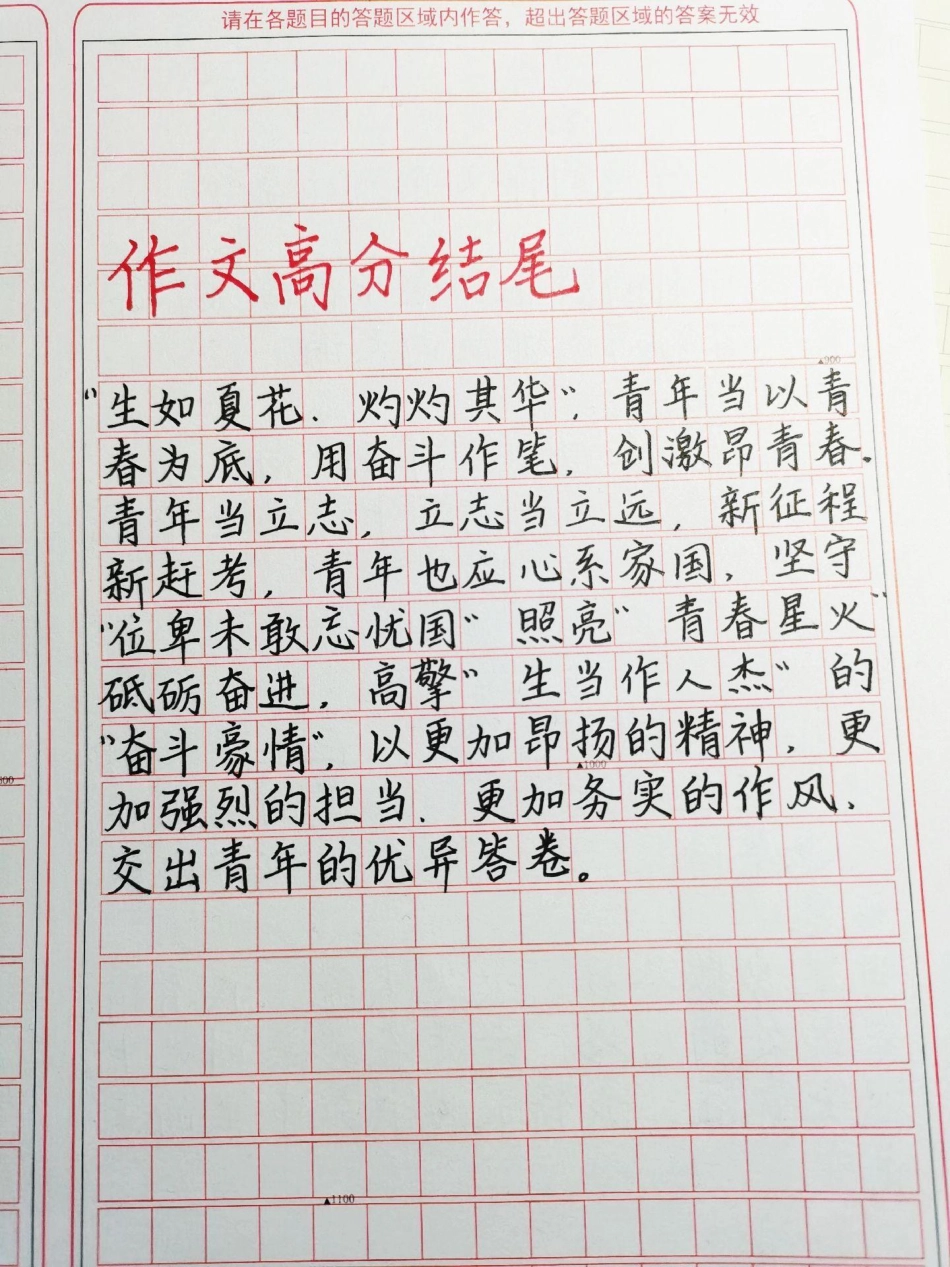 请在各题目的答题区域内作答，超出答题区域的答案无效
作文高分结尾
▲900
“生如夏花．灼灼其华“，青年当以青
春为底，用奋斗作笔，创激昂青春．
青年当立志，立志当立远，新征程
新赶考，青年也应心系家国，坚守
“位卑未敢忘忧国“照亮“青春星火“
砥砺奋进，高擎“生当作人杰“的
“奋斗豪情“，以更加昂扬的精神，更
▲1000
加强烈的担当．更加务实的作风，
交出青年的优异答卷。
▲1100